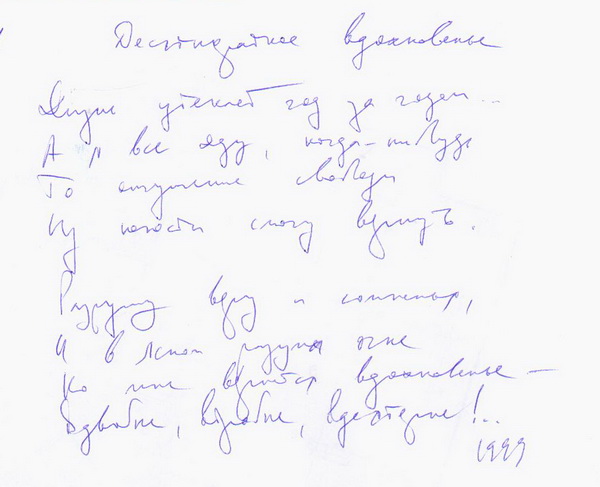 Десятикратное вдохновенье
Жизнь утекает год за годом...
А я все жду, когда-нибудь
То ощущение свободы
Из юности смогу вернуть.
Разрушу и сомненья,
И в ясном разума огне
Ко мне вернётся вдохновенье —
Вдвойне, втройне, вдесятерне!..
1999